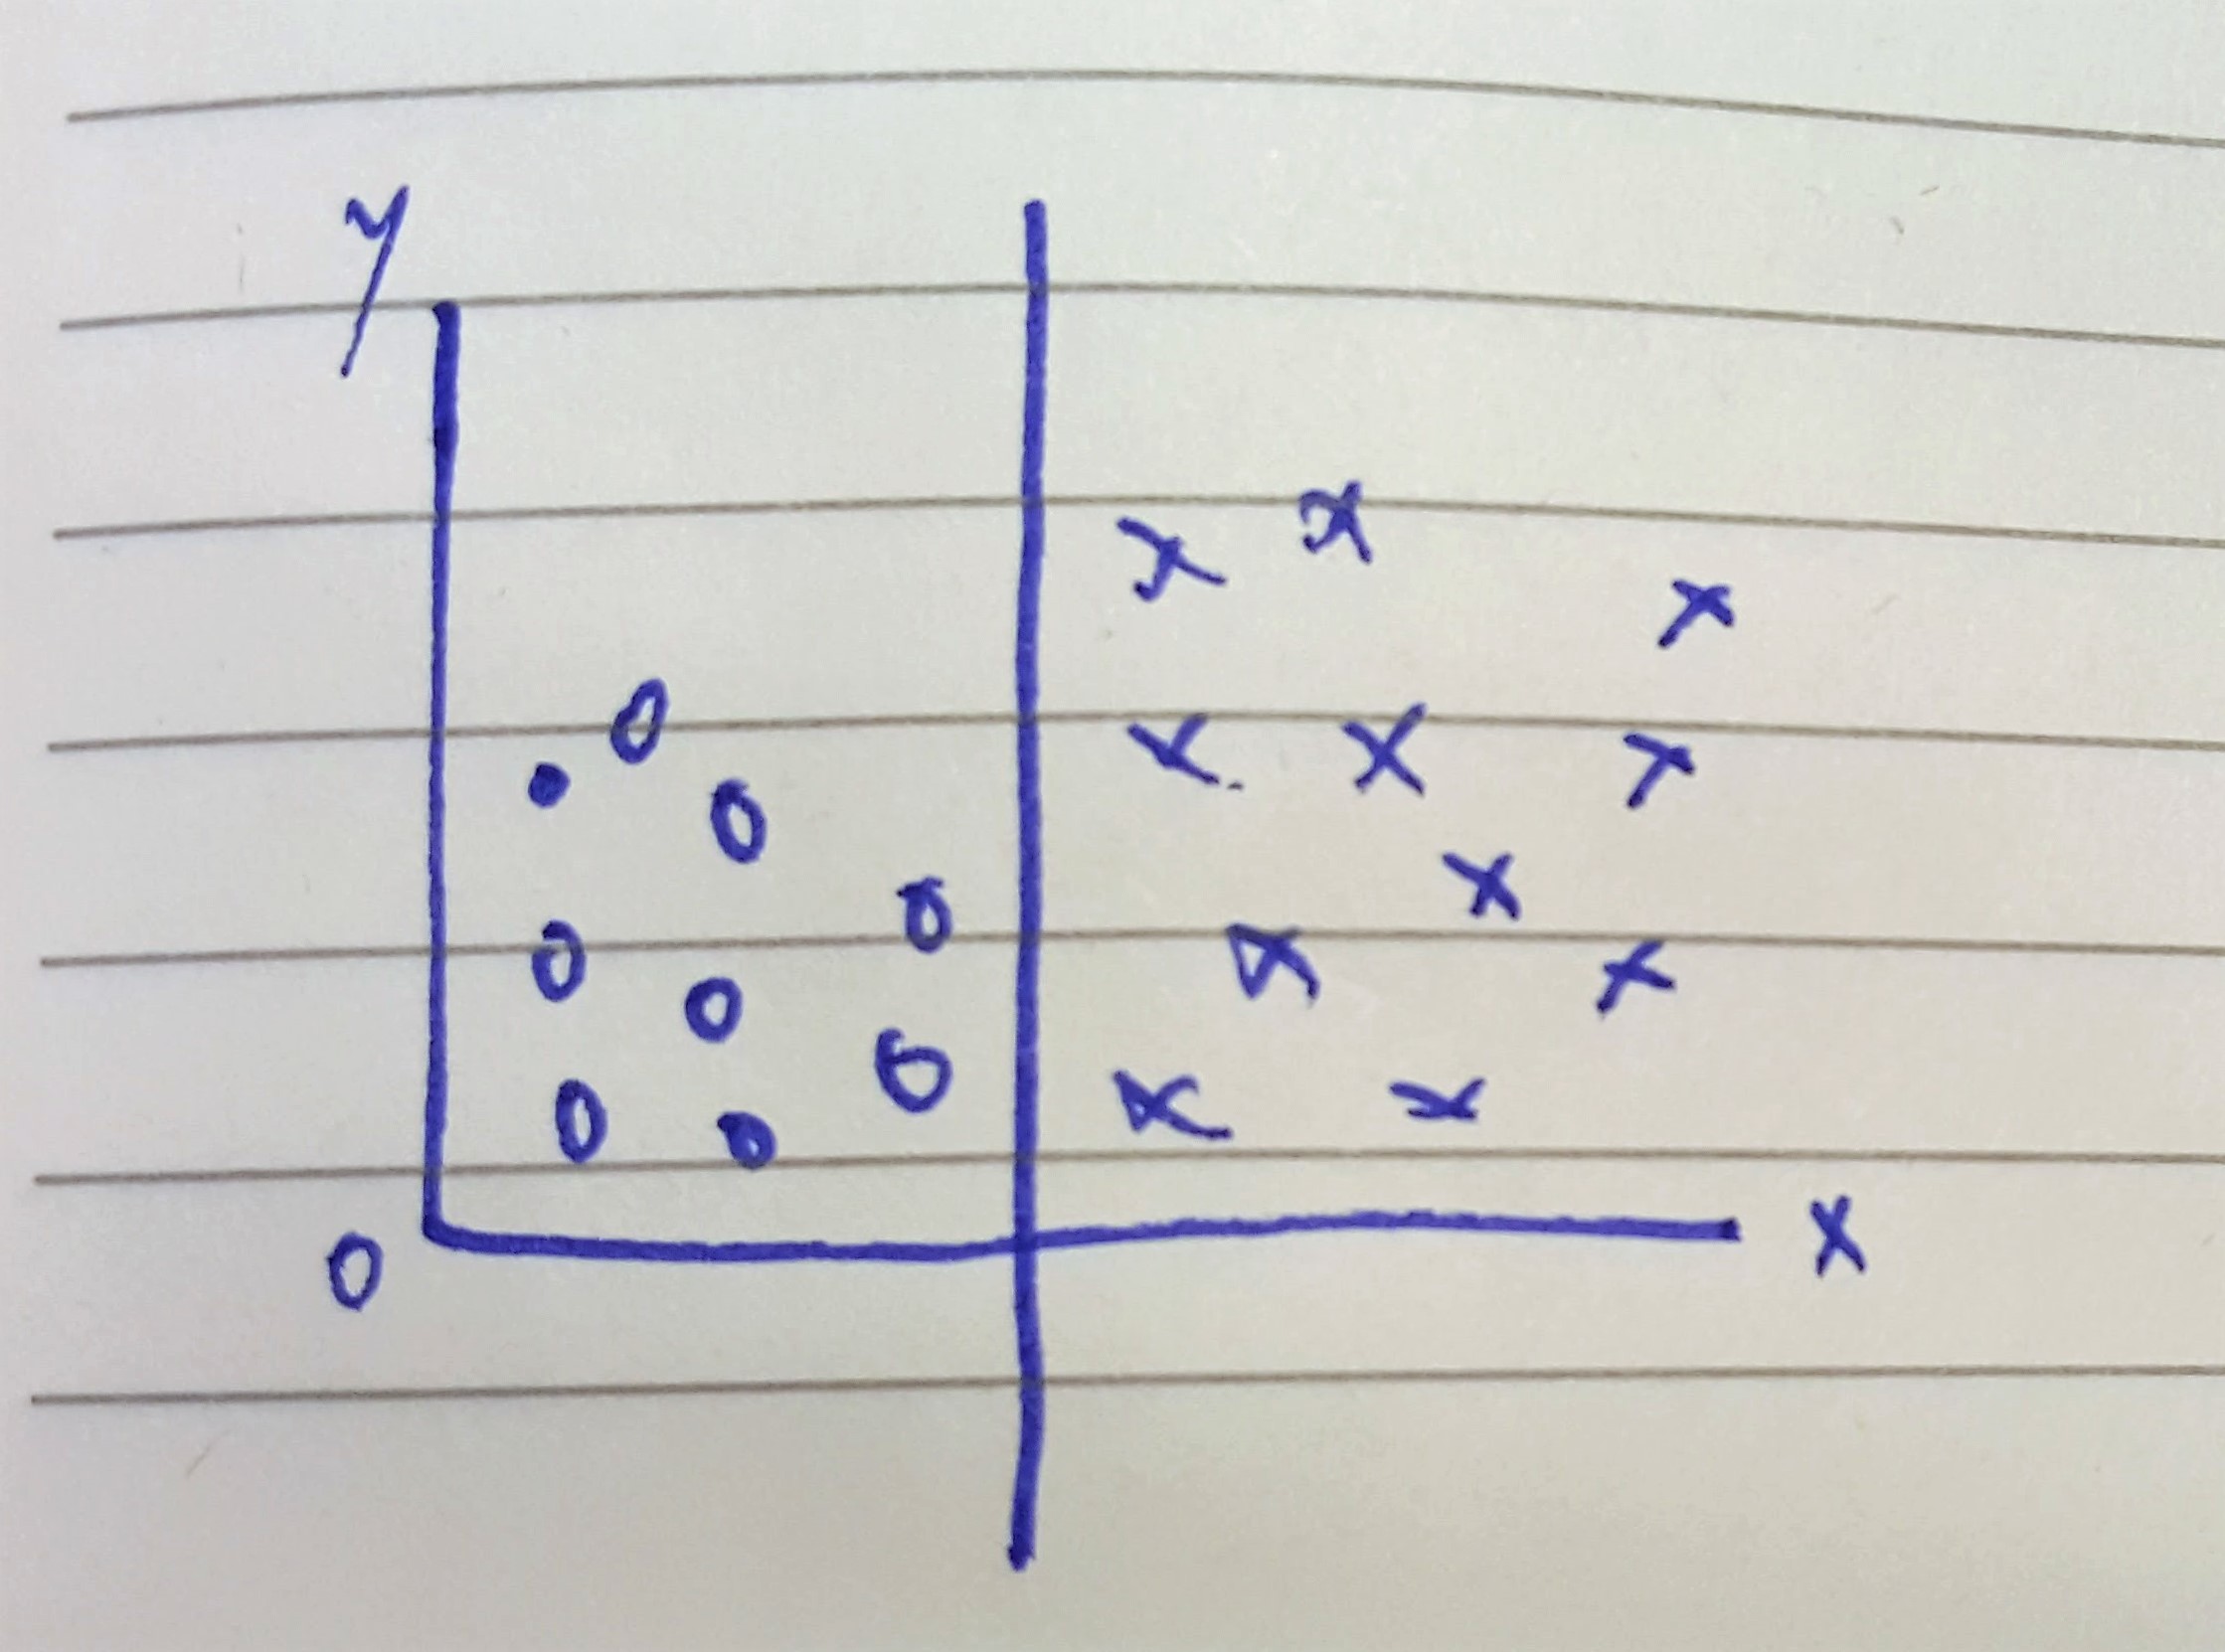 y
0 x